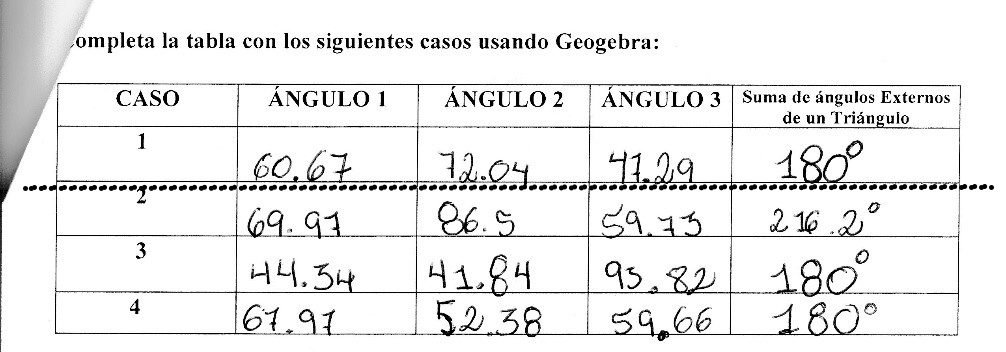 ompleta la tabla con los siguientes casos usando Geogebra:
CASO ÁNGULO 1 ÁNGULO 2 ÁNGULO 3 Suma de ángulos Externos
de un Triángulo
1 60.67 72.04 47.29 180°
2 69.97 86.5 59.73 216.2°
3 44.34 41.84 93.82 180°
4 67.97 52.38 59.66 180°